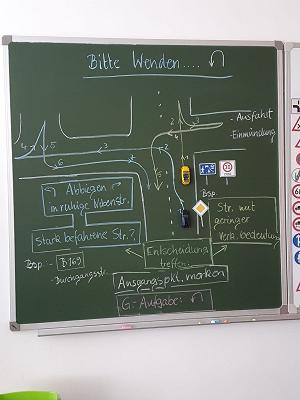 Bitte Wenden....
- Ausfahrt
- Einmündung
2
3
4
1
5
4
5
3
2
6
30
Bsp.
Abbiegen
in ruhige Nebenstr.
Stark befahrene Str.?
Bsp.: - B169
- Durchgangsstr.
Str. mit
geringer
Verk.bedeutung
Entscheidung
treffen:
Ausgangspkt. merken
G=Aufgabe: